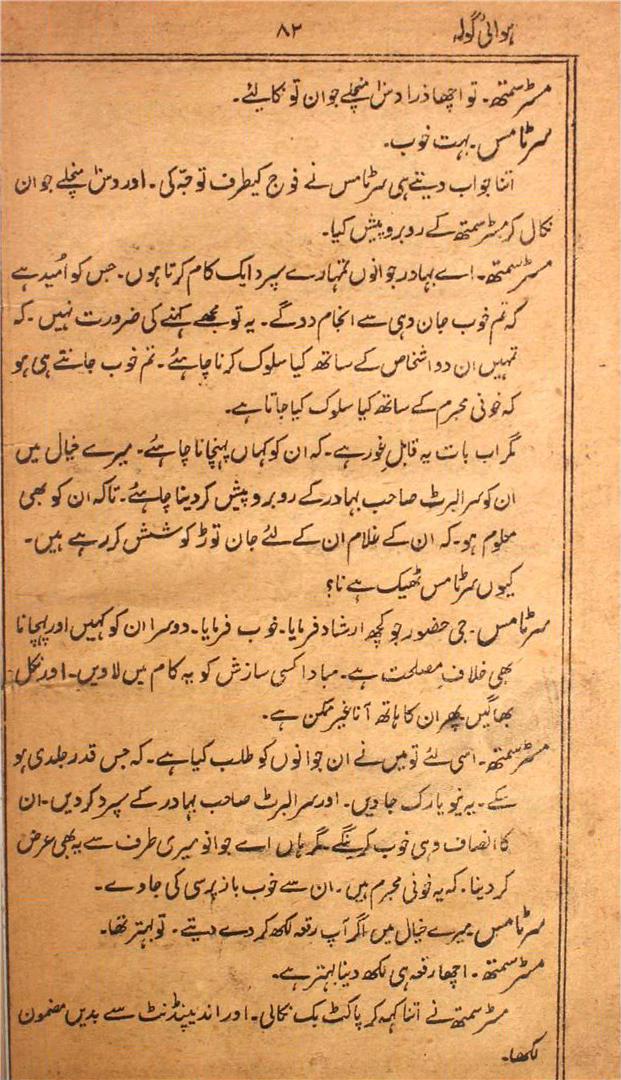 ہوائی گولہ ۸۲
مسٹر سمتھ۔ تو اچھا ذرا دس منچلے جوان تو نکالئے۔
سر ٹامس۔ بہت خوب۔
اتنا جواب دیتے ہی سر ٹامس نے فوج کیطرف توجہ کی۔ اور دس منچلے جوان
نکال کر مسٹر سمتھ کے روبرو پیش کیا۔
مسٹر سمتھ۔ اے بہادر جوانوں تمہارے سپرد ایک کام کرتا ہوں۔ جس کو اُمید ہے
کہ تم خوب جان دہی سے انجام دوگے۔ یہ تو مجھے کہنے کی ضرورت نہیں۔ کہ
تمہیں ان دو اشخاص کے ساتھ کیا سلوک کرنا چاہئے۔ تم خوب جانتے ہی ہو
کہ خونی مجرم کے ساتھ کیا سلوک کیا جاتا ہے۔
مگر اب بات یہ قابلِ غور ہے۔ کہ ان کو کہاں پہنچانا چاہئے۔ میرے خیال میں
ان کو سر البرٹ صاحب بہادر کے روبرو پیش کر دینا چاہئے۔ تاکہ ان کو بھی
معلوم ہو۔ کہ ان کے غلام ان کے لئے جان توڑ کوشش کر رہے ہیں۔
کیوں سر ٹامس ٹھیک ہے نا؟
سر ٹامس۔ جی حضور جو کچھ ارشاد فرمایا۔ خوب فرمایا۔ دوسرا ان کو کہیں اور پہچانا
بھی خلافِ مصلحت ہے۔ مبادا کسی سازش کو یہ کام میں لاویں۔ اور نکل
بھاگیں پھر ان کا ہاتھ آنا غیر ممکن ہے۔
مسٹر سمتھ۔ اسی لئے تو میں نے ان جوانوں کو طلب کیا ہے۔ کہ جس قدر جلدی ہو
سکے۔ یہ نیو یارک جا دیں۔ اور سر البرٹ صاحب بہادر کے سپرد کر دیں۔ ان
کا انصاف وہی خوب کرینگے مگر ہاں اے جوانو میری طرف سے یہ بھی عرض
کر دینا۔ کہ یہ خونی مجرم ہیں۔ ان سے خوب باز پرسی کی جاوے۔
سر ٹامس۔ میرے خیال میں اگر آپ رقعہ لکھ کر دے دیتے۔ تو بہتر تھا۔
مسٹر سمتھ۔ اچھا رقعہ ہی لکھ دینا بہتر ہے۔
مسٹر سمتھ نے اتنا کہہ کر پاکٹ بک نکالی۔ اور انڈیپنڈنٹ سے بدیں مضمون
لکھا۔